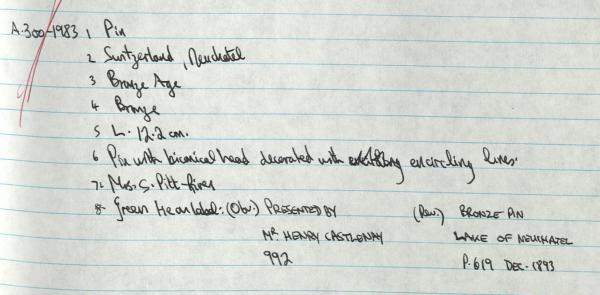 A.300-1983 1 Pin
2 Switzerland, Neuchatel
3 Bronze Age
4 Bronze
5 L. 12.2 cm.
6 Pin with biconical head decorated with encircling lines.
7. Mrs. S. Pitt-Rivers
8. Green Heron label: (Obv.) PRESENTED BY (Rev.) BRONZE PIN
MR. HENRY CASTLENAY LAKE OF NEUCHATEL
992 P. 619 DEC. 1893